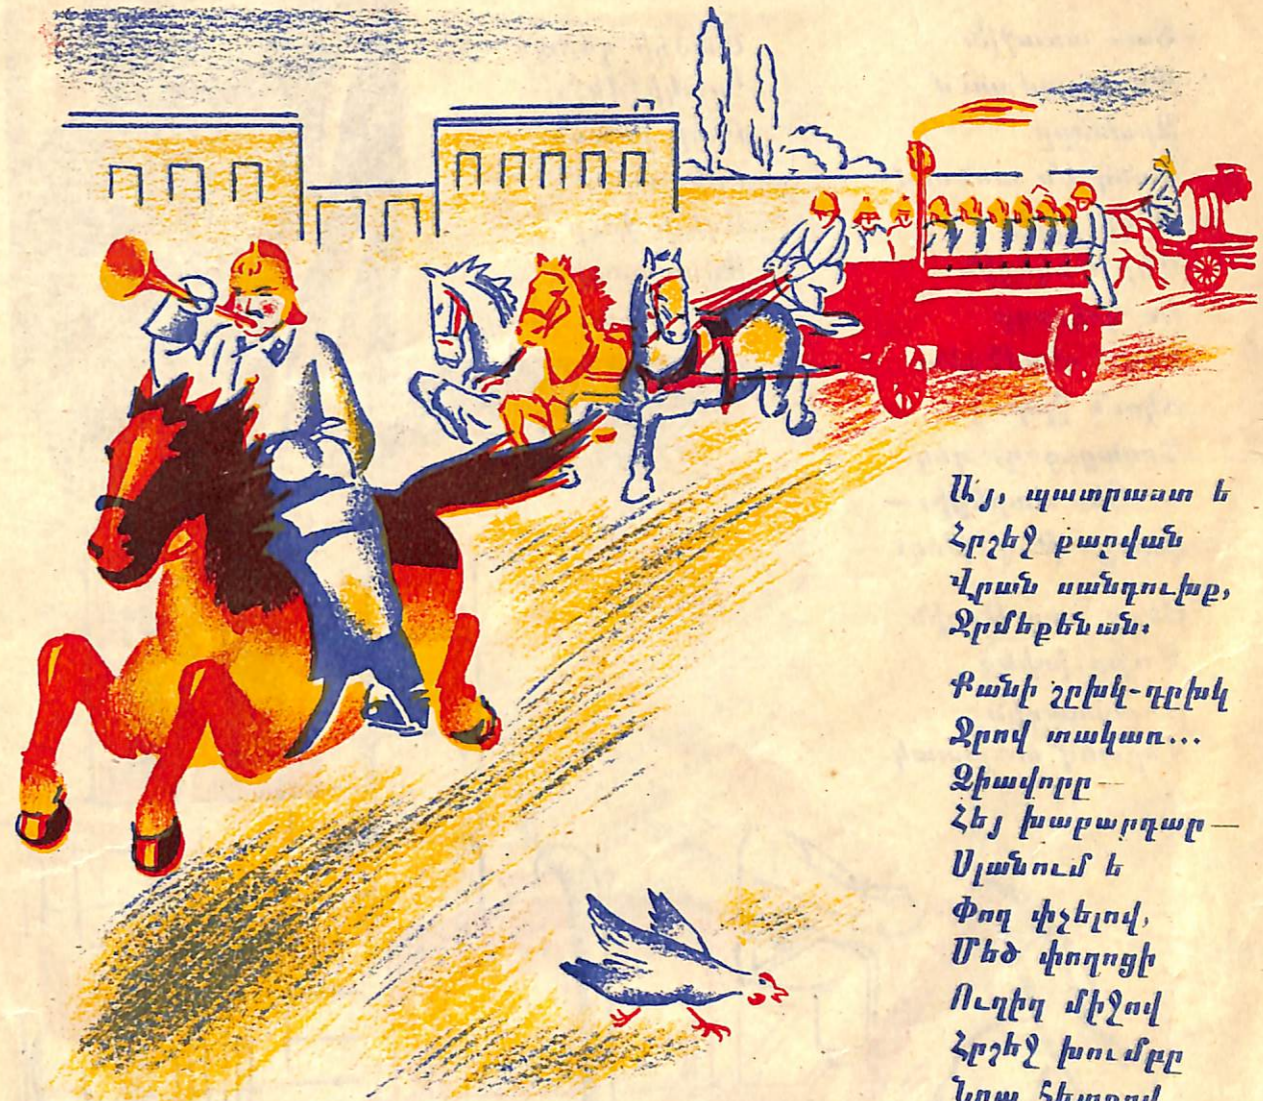 Այ, պատրաստ է
Հրշեջ քարվան
Վրան սանդուխք,
Ջրմեքենան։
Քանի շըխկ-դըխկ
Ջրով տակառ...
Ձիավորը—
Հեյ խաբարդար—
Սլանում է
Փող փչելով,
Մեծ փողոցի
Ուղիղ միջով
Հրշեջ խումբը
Նրա հետքով